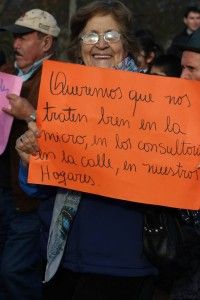 Queremos que nos
traten bien en la
micro, en los consultori
en la calle, en nuestros
Hogares.